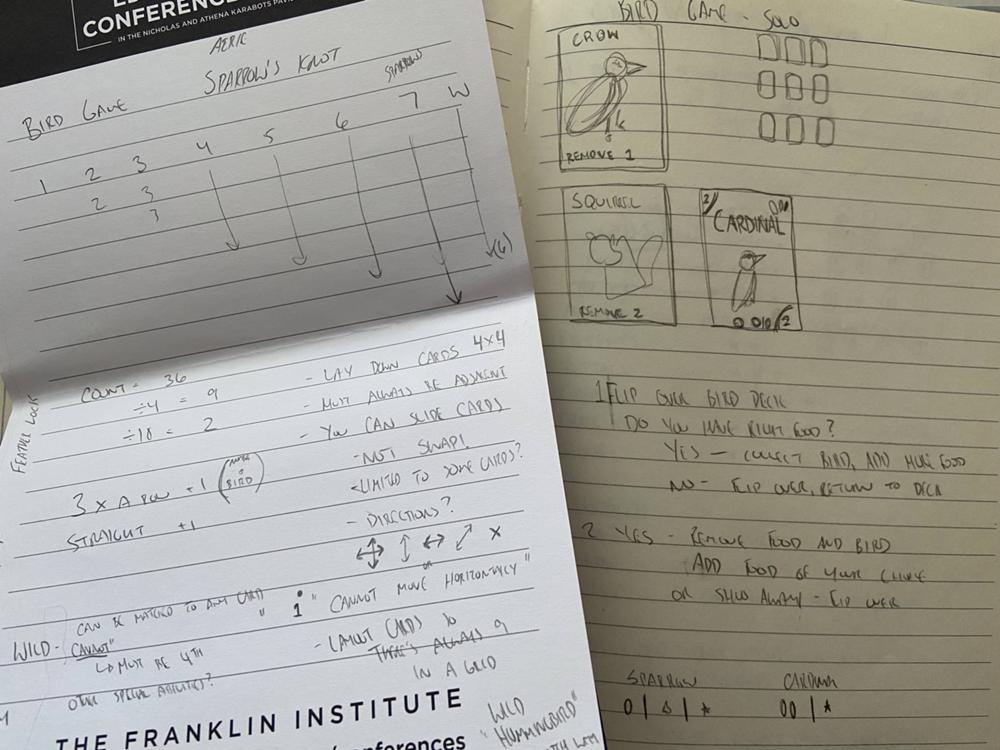 CONFERENCE
IN THE NICHOLAS AND ATHENA KARABOTS PAVI
AERIE
SPARROW'S KNOT
SPARROWS
BIRD GAME
1 2 3 4 5 6 7 W
2 3
3
(6)
FEATHER LOCK
COUNT = 36
÷4 = 9
÷18 = 2
3 x A ROW +1 (
BIRD)
STRAIGHT +1
- LAY DOWN CARDS 4x4
- MUST ALWAYS BE ADJACENT
- YOU CAN SLIDE CARDS
- NOT SWAP!
- LIMITED TO SOME CARDS?
- DIRECTIONS?
OR
" 1 " CANNOT MOVE HORIZONTALLY"
CAN BE MATCHED TO ANY CARD
WILD - "CANNOT"
↳ MUST BE 4TH
OTHER SPECIAL ABILITIES?
- LAYOUT CARDS SO
THERE'S ALWAYS 9
IN A GRID
THE FRANKLIN INSTITUTE
/conferences
WILD
"HUMMINGBIRD"
BIRD GAME - SOLO
CROW
REMOVE 1
SQUIRREL
REMOVE 2
2
CARDINAL
2
1 FLIP OVER BIRD DECK
DO YOU HAVE RIGHT FOOD?
YES - COLLECT BIRD, ADD MORE FOOD
NO - FLIP OVER, RETURN TO DECK
2 YES - REMOVE FOOD AND BIRD
ADD FOOD OF YOUR CHOICE
OR SHOO AWAY - FLIP OVER
SPARROW
CARDINAL